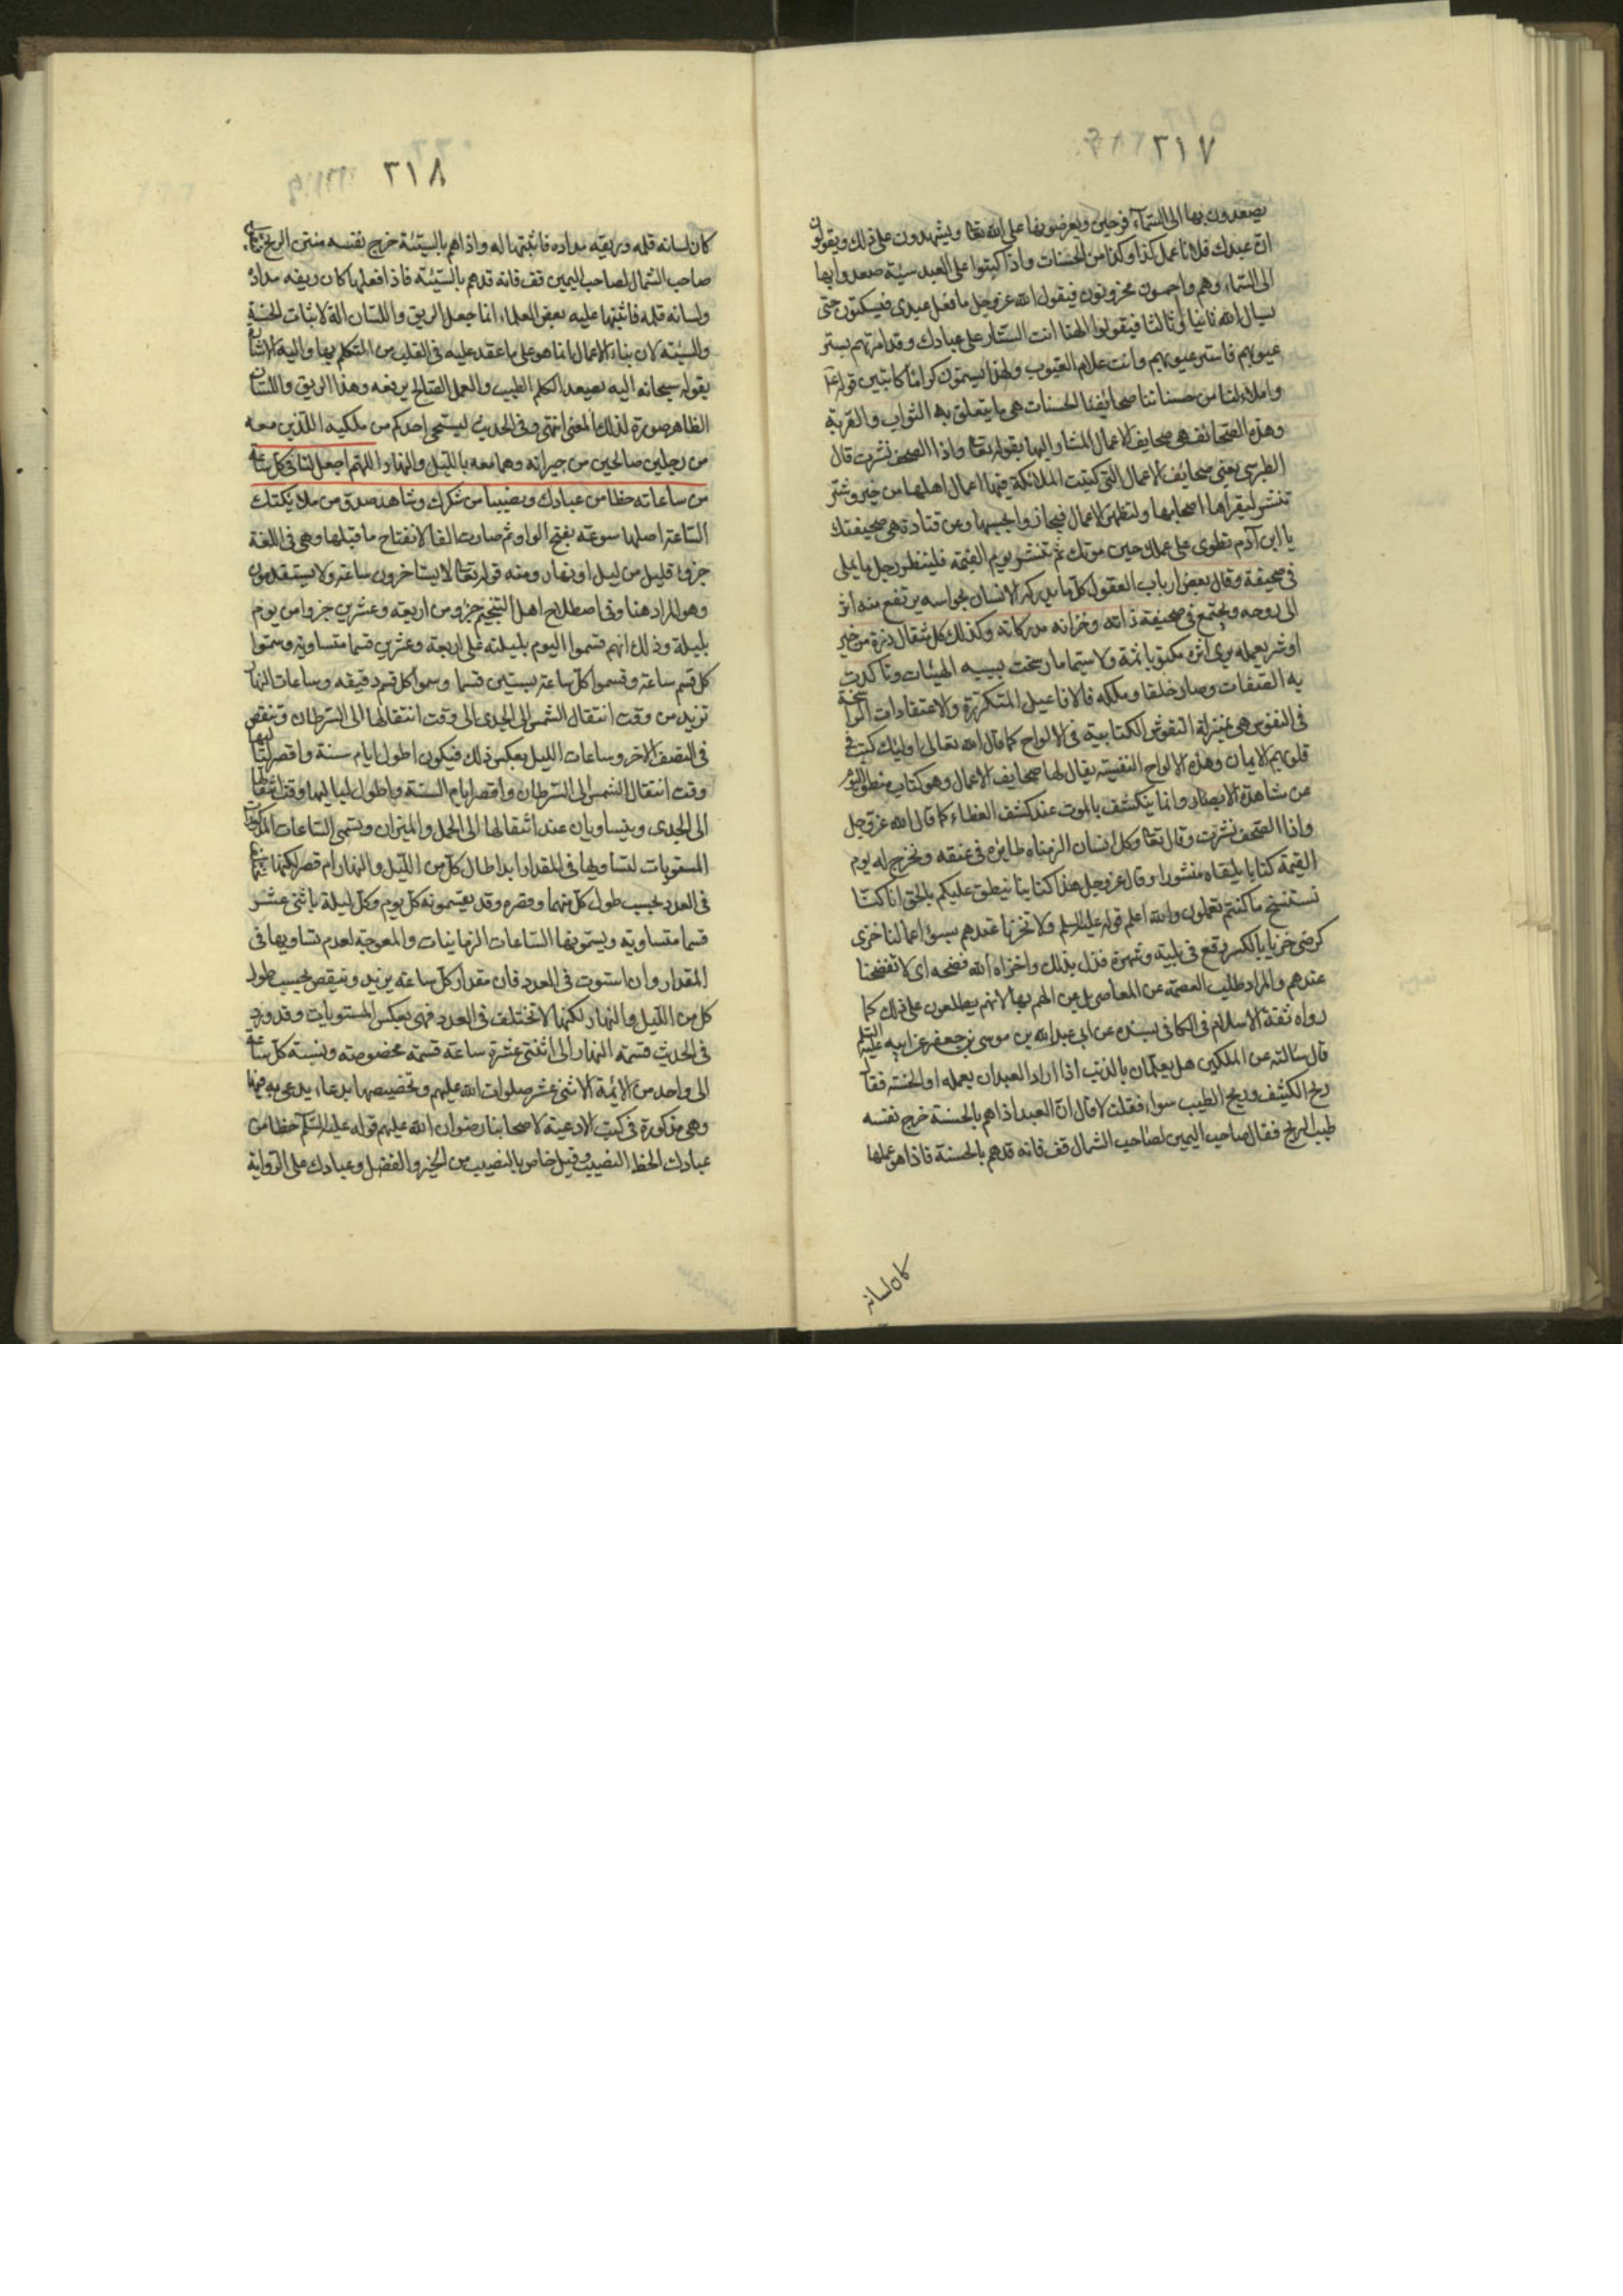 ٣١٧
يصعدون بها الى السّمآء فرحين ويعرضونها على الله تعا ويشهدون على ذلك ويقولون
انّ عبدك فلانا عمل كذا وكذا من الحسنات واذا كتبوا على العبد سيّئة صعدوا بها
الى السّماء وهم واجمون محزونون فيقول الله عز وجل ما فعل عبدى فيسكتون حتى
يسال الله ثانيا وثالثا فيقولوا الهنا انت الستّار على عبادك وقد امرتهم بستر
عيوبهم فاستر عيوبهم وانت علام الغيوب ولهذا يسمّون كراما كاتبين قوله
واملاء لنا من حسناتنا صحائفنا الحسنات هى ما يتعلق به الثواب والقربة
وهذه الصّحائف هى صحايف الاعمال المشار اليها بقوله تعا واذا الصحف نشرت قال
الطبرسى يعنى صحائف الاعمال التى كتبت الملائكة فيها اعمال اهلها من خير وشر
تنشر ليقراها اصحابها ولتظهر الاعمال فيجازوا بحسبها وعن قتادة هى صحيفتك
يا ابن آدم تطوى على عملك حين موتك ثم تنشر يوم القيمة فلينظر رجل ما يملى
فى صحيفة وقال بعض ارباب العقول كلّ ما يدركه الانسان بحواسه يرتفع منه اثر
الى روحه ويجتمع فى صحيفة ذاته وخزانة مدركاته وكذلك كل مثقال ذرة من خير
او شر يعمله يرى اثره مكتوبا ثمة ولا سيّما ما رسخت بسببه الهيئات وتاكدت
به الصّفات وصار خلقا وملكة فالافاعيل المتكرّرة والاعتقادات الراسخة
فى النفوس هى بمنزلة النقوش الكتابية فى الالواح كما قال الله تعالى اوليك كتب فى
قلوبهم الايمان وهذه الالواح النفسية يقال لها صحايف الاعمال وهو كتاب منطو اليوم
عن مشاهدة الابصار وانما ينكشف بالموت عند كشف الغطاء كما قال الله عز وجل
واذا الصّحف نشرت وقال تعا وكل انسان الزمناه طائره فى عنقه ونخرج له يوم
القيمة كتابا يلقاه منشورا وقال عز وجل هذا كتابنا ينطق عليكم بالحق انا كنّا
نستنسخ ما كنتم تعملون والله اعلم قوله عليه السلم ولا تخزنا عندهم بسوء اعمالنا خزى
كرضى خزيا بالكسر وقع فى بلية وشهرة فذل بذلك واخزاه الله فضحه اى لا تفضحنا
عندهم والمراد طلب العصمة عن المعاصى بل عن الهم بها لانهم يطلعون على ذلك كما
رواه ثقة الاسلام فى الكافى بسنده عن ابى عبد الله بن موسى بن جعفر عن ابيه عليه السلم
قال سالته عن الملكين هل يعلمان بالذنب اذا اراد العبد ان يعمله او الحسنة فقال
ريح الكنيف وريح الطيب سواء فقلت لا قال انّ العبد اذا هم بالحسنة خرج نفسه
طيب الريح فقال صاحب اليمين لصاحب الشمال قف فانه قد هم بالحسنة فاذا هو عملها
كان لسانه
٣١٨
كان لسانه قلمه وريقه مداده فاثبتها له واذا هم بالسيّئة خرج نفسه منتن الريح فيقول
صاحب الشمال لصاحب اليمين قف فانه قد هم بالسّيئة فاذا فعلها كان ريقه مداده
ولسانه قلمه فاثبتها عليه بعض العلماء انما جعل الريق واللسان الة لاثبات الحسنة
والسيّئة لان بناء الاعمال انما هو على ما عقد عليه فى القلب من التكلم بها واليه الاشارة
بقوله سبحانه اليه يصعد الكلم الطيب والعمل الصّالح يرفعه وهذا الريق واللسان
الظاهر صورة لذلك المعنى انتهى وفى الحديث ليستحى احدكم من ملكيه اللذين معه
من رجلين صالحين من جيرانه وهما معه بالليل والنهار اللهم اجعل لنا فى كل ساعة
من ساعاته حظا من عبادك ونصيبا من شكرك وشاهد صدق من ملائكتك
السّاعة اصلها سوعة بفتح الواو ثم صارت الفا لانفتاح ما قبلها وهى فى اللغة
جزء قليل من ليل او نهار ومنه قوله تعا لا يستاخرون ساعة ولا يستقدمون
وهو المراد هنا وفى اصطلاح اهل التنجيم جزو من اربعة وعشرين جزوا من يوم
بليلة وذلك انهم قسموا اليوم بليلته على اربعة وعشرين قسما متساوية وسمّوا
كل قسم ساعة وقسموا كل ساعة بستين قسما وسموا كل قسم دقيقه وساعات النهار
تزيد من وقت انتقال الشمس الى الجدى الى وقت انتقالها الى السّرطان وتنقص
فى النصف الاخر وساعات الليل بعكس ذلك فيكون اطول ايام سنة واقصر لياليها
وقت انتقال الشمس الى السّرطان واقصر ايام السنة واطول لياليها وقت انتقالها
الى الجدى ويتساويان عند انتقالها الى الحمل والميزان وتسمى السّاعات المذكورة
المستويات لتساويها فى المقدار ابدا طال كل من الليل والنهار ام قصر لكنها تختلف
فى العدد بحسب طول كل منهما وقصره وقد يقسمونه كل يوم وكل ليلة باثنى عشر
قسما متساوية ويسمّونها السّاعات الزمانيات والمعوجة لعدم تساويها فى
المقدار وان استوت فى العدد فان مقدار كل ساعة يزيد وينقص بحسب طول
كل من الليل والنهار لكنها لا تختلف فى العدد فهى بعكس المستويات وقد ورد
فى الحديث قسمة النهار الى اثنتى عشرة ساعة قسمة مخصوصة ونسبة كل ساعة
الى واحد من الائمة الاثنى عشر صلوات الله عليهم وتخصيصها بدعاء يدعى به فيها
وهى مذكورة فى كتب الادعية لاصحابنا رضوان الله عليهم قوله عليه السّلم حظا من
عبادك الحظ النصيب وقيل خاص بالنصيب من الخير والفضل وعبادك على الرواية